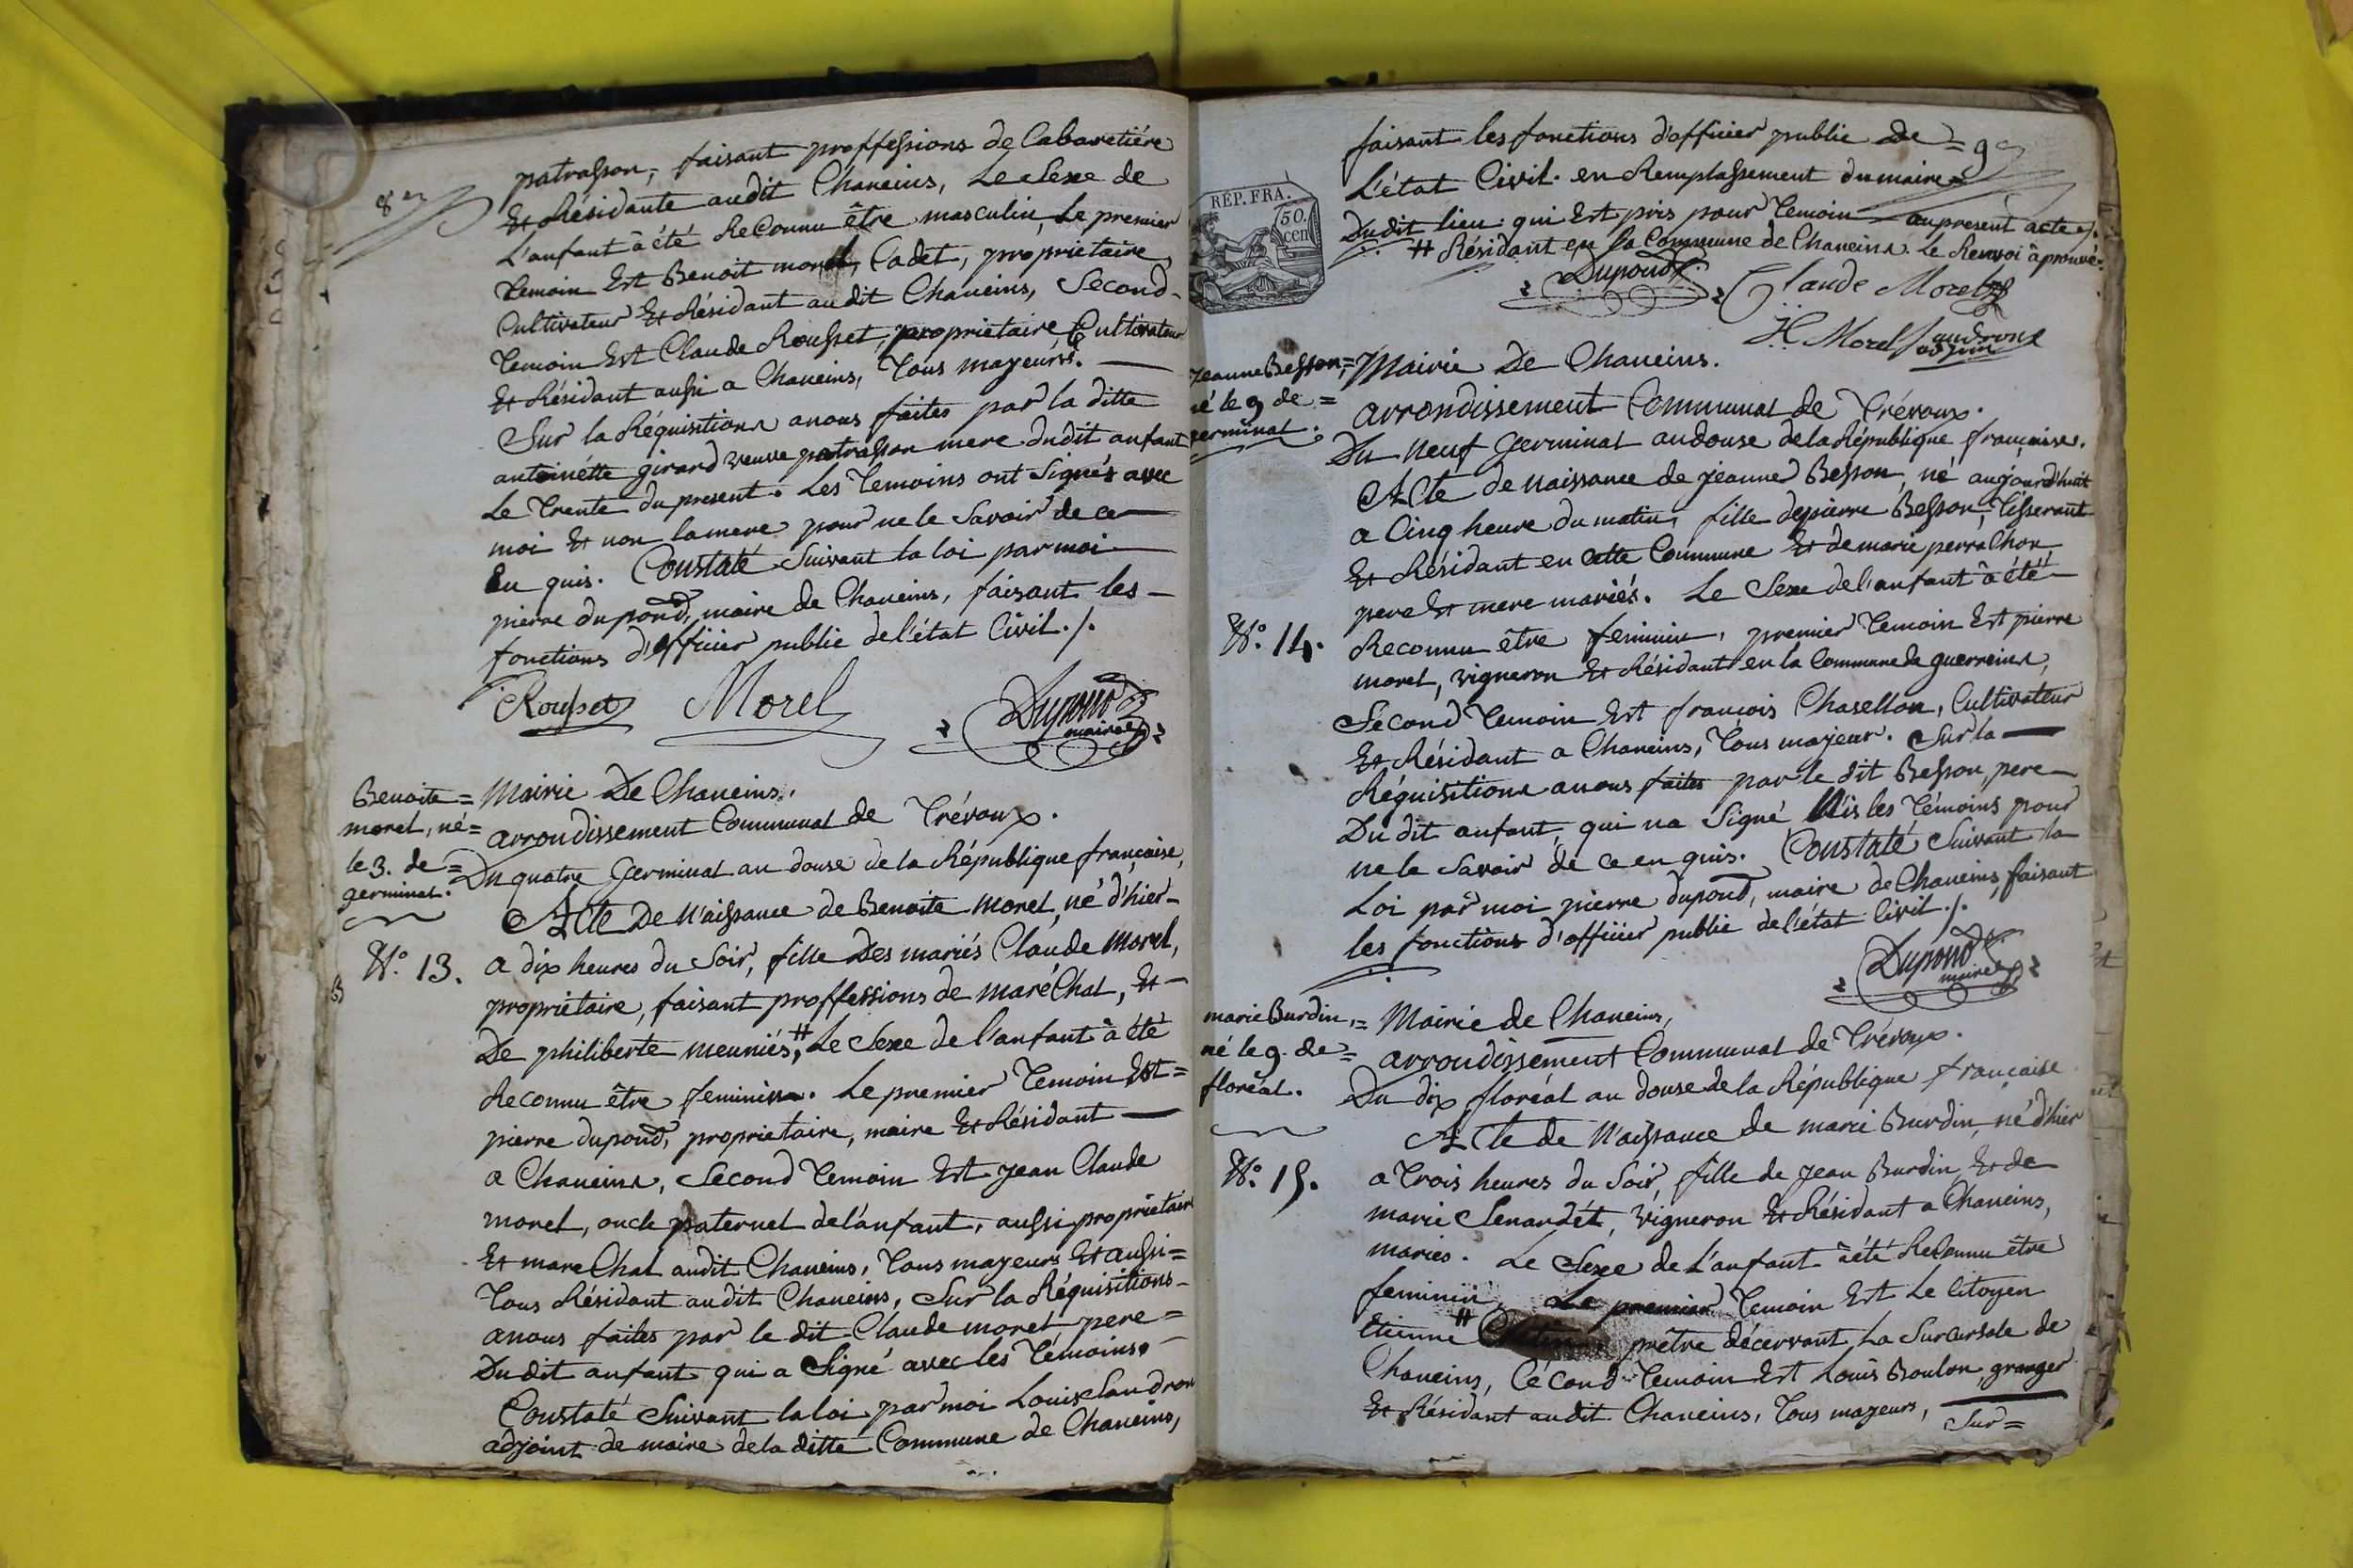 8
patrasson, faisant proffessions de Cabaretiére
Et Résidante audit Chaneins, Le Sexe de
L'anfant à été Reconnu être masculin, Le premier
Temoin Est Benoit morel, Cadet, propriétaire,
Cultivateur Et Résidant audit Chaneins, Second
Temoin Est Claude Rousset, propriétaire, Cultivateur
Et Résidant aussi a Chaneins, Tous mayeurs.
Sur la Réquisitions anous faites par la ditte
antoinétte girard veuve patrasson mere dudit anfant
Le Trente du present. Les Temoins ont Signés avec
moi Et non lamere pour ne le Savoir de ce
En quis. Constaté Suivant la loi par moi
pierre dupond, maire de Chaneins, faisant les
fonctions d'officier public de l'état Civil ./.
Rousset Morel Dupond maire
Benoite = Mairie De Chaneins.
morel, né = arrondissement Communal de Trévoux.
le 3. de = Du quatre Germinal an douse de la République française,
germinal.
Acte De Naissance de Benoite Morel, né d'hier
N.° 13. a dix heures du Soir, fille Des mariés Claude Morel,
propriétaire, faisant proffessions de maréChal, Et
De philiberte meuniés, # Le Sexe de l'anfant à été
Reconnu être feminin. Le premier Temoin Est =
pierre dupond, propriétaire, maire Et Résidant
a Chaneins, Second Temoin Est Jean Claude
morel, oncle paternel de l'anfant, aussi propriétaire
Et mareChal audit Chaneins, Tous mayeurs Et aussi =
Tous Résidant audit Chaneins, Sur la Réquisitions
anous faites par le dit Claude morel pere =
Dudit anfant qui a Signé avec les Témoins.
Constaté Suivant la loi par moi Louis Sandron
adjoint de maire de la ditte Commune de Chaneins,
faisant les fonctions d'officier public de = 9
L'état Civil. en Remplassement du maire
Dudit lieu qui Est pris pour Temoin au present acte ./.
# Résidant en la Commune de Chaneins. Le Renvoi àprouvé.
REP. FRA.
50. cen
Dupond Claude Morel
Morel Sandron adjoin
Jeanne Besson, = Mairie De Chaneins.
né le 9 de = arrondissement Communal de Trévoux.
germinal. Du neuf Germinal an douse de la République française.
Acte de naissance de jeanne Besson, né aujourd'huit
a Cinq heure du matin, fille de pierre Besson, Tisserant
Et Résidant en Cette Commune Et de marie perraChon
pere Et mere mariés. Le Sexe de l'anfant à été
N.° 14. Reconnu être feminin, premier Temoin Est pierre
morel, vigneron Et Résidant en la Commune de guerreins,
Second Temoin Est françois Chasellon, Cultivateur
Et Résidant a Chaneins, Tous mayeur. Sur la
Réquisitions anous faites par le dit Besson, pere
Du dit anfant, qui na Signé Nis les Témoins pour
ne le Savoir de ce en quis. Constaté Suivant la
Loi par moi pierre dupond, maire de Chaneins, faisant
les fonctions d'officier public de l'état Civil ./.
Dupond maire
marie Burdin, = Mairie de Chaneins,
né le 9. de = arrondissement Communal de Trévoux.
floréal. Du dix floréal an douse de la République française
Acte de Naissance de marie Burdin, né d'hier
N.° 15. a Trois heures du Soir, fille de Jean Burdin Et de
marie Senardét, Vigneron Et Résidant a Chaneins,
mariés. Le Sexe de L'anfant à été Reconnu être
feminin, Le premier Temoin Est Le Citoyen
Etienne # prêtre décervant La Surcursale de
Chaneins, Cécond Temoin Est Louis Boulon, granger
Et Résidant audit Chaneins, Tous mayeurs,
Sur =